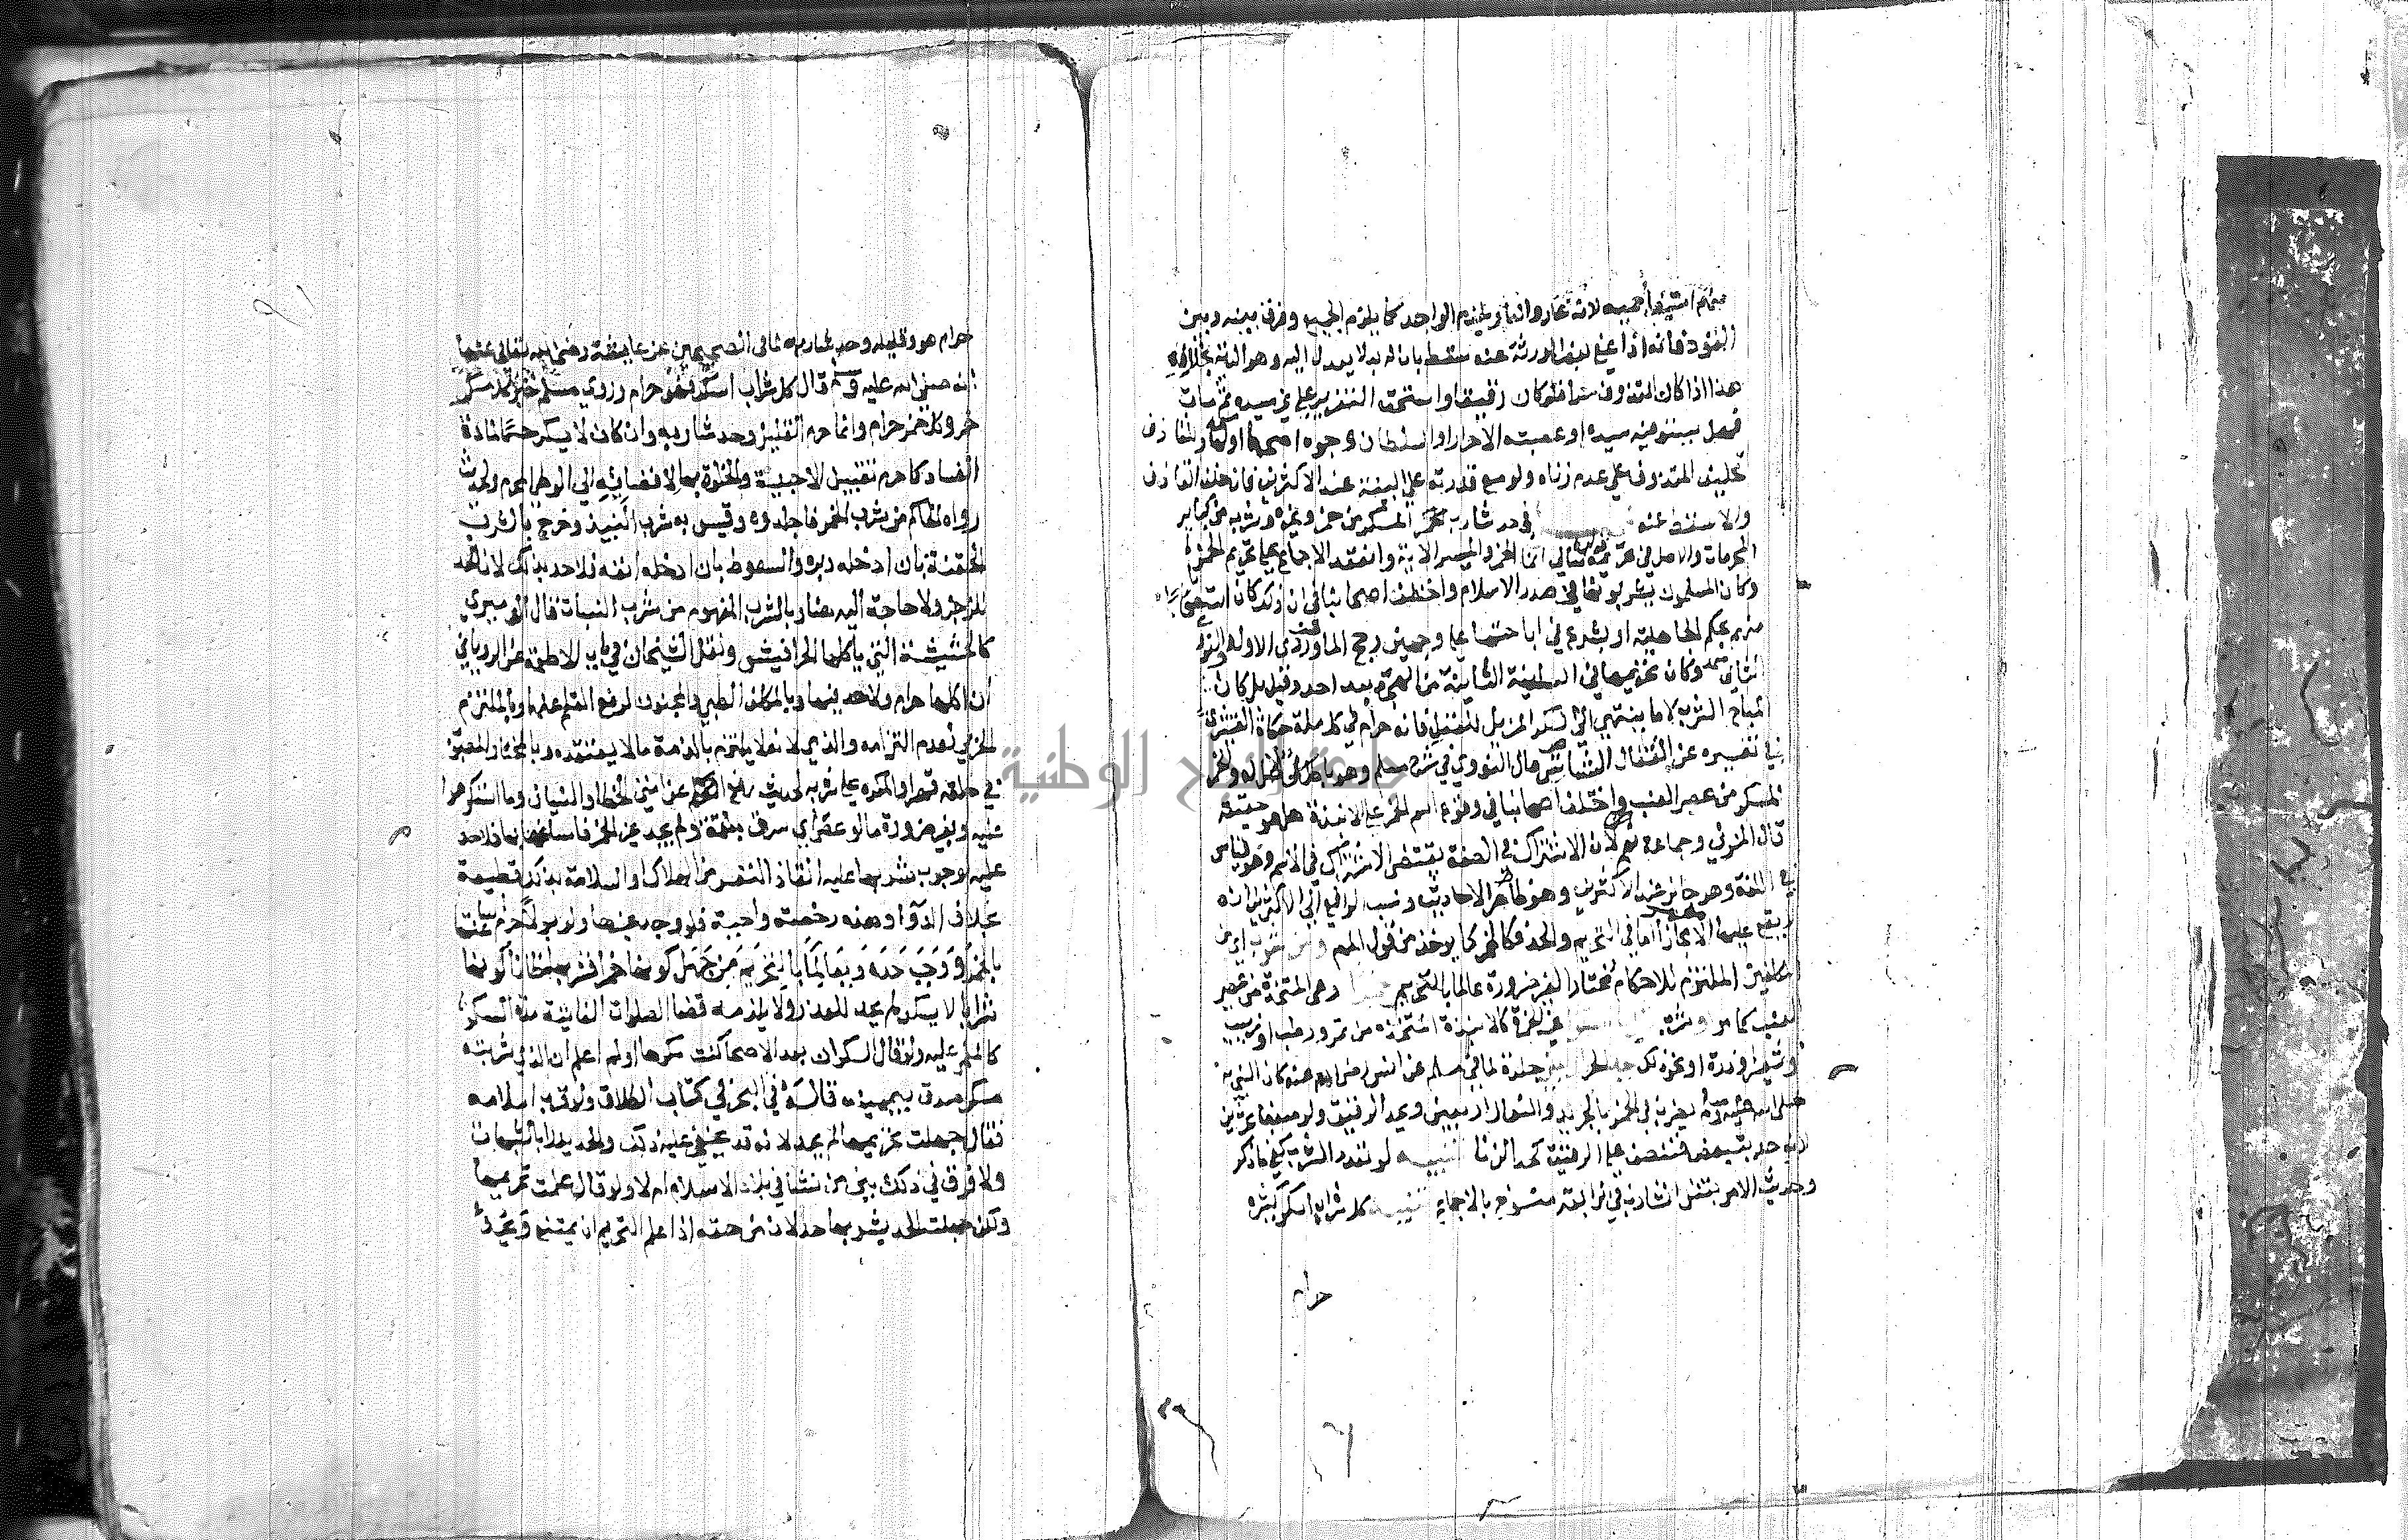 منهم استيفاء جميعه لانه عار والعار يلزم الواحد كما يلزم الجميع وفرق بينه وبين
القود فانه اذا عفى بعض الورثة عنه سقط بان له بدلا يعدل اليه وهو الدية بخلافه
هذا اذا كان المقذوف حرا فلو كان رقيقا واستحق التعزير على غير سيده ثم مات
فهل يستوفيه سيده او عصبته الاحرار او السلطان وجوه اصحها اولها وللقاذف
تحليف المقذوف على عدم زناه ولو مع قدرته على البينة عند الاكثرين فان حلف القاذف
والا سقط عنه في حد شارب المسكر من خمر وغيره وشربه من كباير
المحرمات والاصل في تحريمه قوله تعالى انما الخمر والميسر الاية وانعقد الاجماع على تحريم الخمر
وكان المسلمون يشربونها في صدر الاسلام واختلف اصحابنا في ان ذلك كان استصحابا
منهم بحكم الجاهلية او بشرع في اباحتها على وجهين رجح الماوردي الاول والنووي
الثاني وكان تحريمها في السنة الثانية من الهجرة بعد احد وقيل بل كان
المباح الشرب لا ما ينتهي الى السكر المزيل للعقل فانه حرام في كل ملة حكاه القشيري
في تفسيره عن القفال الشاشي قال النووي في شرح مسلم وهو باطل لا اصل له والخمر
المسكر من عصير العنب واختلف اصحابنا في وقوع اسم الخمر على الانبذة هل هو حقيقة
قال المزني وجماعة نعم لان الاشتراك في الصفة يقتضي الاشتراك في الاسم وهو قياس
في اللغة وهو جائز عند الاكثرين وهو ظاهر الاحاديث ونسب الرافعي الى الاكثرين انه
لا يقع عليها الا مجازا اما في التحريم والحد فكالخمر كما يؤخذ من قول المصنف ومن شرب اي من
المكلفين الملتزم للاحكام مختارا لغير ضرورة عالما بالتحريم خمرا وهي المتخذة من عصير
العنب كما مر او شرابا مسكرا غير الخمرة كالانبذة المتخذة من تمر ورطب او زبيب
وشعير وذرة او نحو ذلك حد الحر اربعين جلدة لما في مسلم عن انس رضي الله عنه كان النبي
صلى الله عليه وسلم يضرب في الخمر بالجريد والنعال اربعين ويحد الرقيق ولو مبعضا عشرين
لانه حد يتبعض فتنصف على الرقيق كحد الزنا تنبيه لو تعدد الشرب كفى ما ذكر
وحديث الامر بقتل الشارب في الرابعة منسوخ بالاجماع تنبيه كل شراب اسكر كثيره
حرام
حرام هو وقليله وحد شاربه لما في الصحيحين عن عايشة رضي الله تعالى عنها
انه صلى الله عليه وسلم قال كل شراب اسكر فهو حرام وروى مسلم خبر كل مسكر
خمر وكل خمر حرام وانما حرم القليل وحد شاربه وان كان لا يسكر حسما لمادة
الفساد كما حرم تقبيل الاجنبية والخلوة بها لافضائه الى الوطء المحرم ولحديث
رواه الحاكم من شرب الخمر فاجلدوه وقيس به شرب النبيذ وخرج بالشرب
الحقنة بان ادخله دبره والسعوط بان ادخله انفه فلا حد بذلك لان الحد
للزجر ولا حاجة اليه هنا وبالشرب المفهوم من شرب النبات قال الدميري
كالحشيشة التي ياكلها الحرافيش ونقل الشيخان في باب الاطعمة عن الروياني
ان اكلها حرام ولا حد فيها وبالمكلف الصبي والمجنون لرفع القلم عنهما وبالملتزم
الحربي لعدم التزامه والذمي لانه لا يلتزم بالذمة ما لا يعتقده وبالمختار المصبوب
في حلقه قهرا والمكره على شربه لحديث رفع القلم عن امتي الخطا والنسيان وما استكرهوا
عليه وبغير ضرورة ما لو غص اي شرق بلقمة ولم يجد غير الخمر فاساغها بها فلا حد
عليه لوجوب شربها عليه انقاذا للنفس من الهلاك والسلامة بذلك قطيعة
بخلاف الدوا وهذه رخصة واجبة فلو وجد غيرها ولو بولا حرم اساغتها
بالخمر ووجب حده وبعالما بالتحريم من جهل كونها خمرا فشربها ظانا كونها
شرابا لا يسكر لم يحد للعذر ولا يلزمه قضا الصلوات الفائتة مدة السكر
كالمغمى عليه ولو قال السكران بعد الاصحا كنت مكرها او لم اعلم ان الذي شربته
مسكر صدق بيمينه قاله في البحر في كتاب الطلاق ولو قرب اسلامه
فقال جهلت تحريمها لم يحد لانه قد يخفى عليه ذلك والحد يدرا بالشبهات
ولا فرق في ذلك بين من نشا في بلاد الاسلام ام لا ولو قال علمت تحريمها
ولكن جهلت الحد بشربها حد لان من حقه اذا علم التحريم ان يمتنع ويحد
جامعة النجاح الوطنية